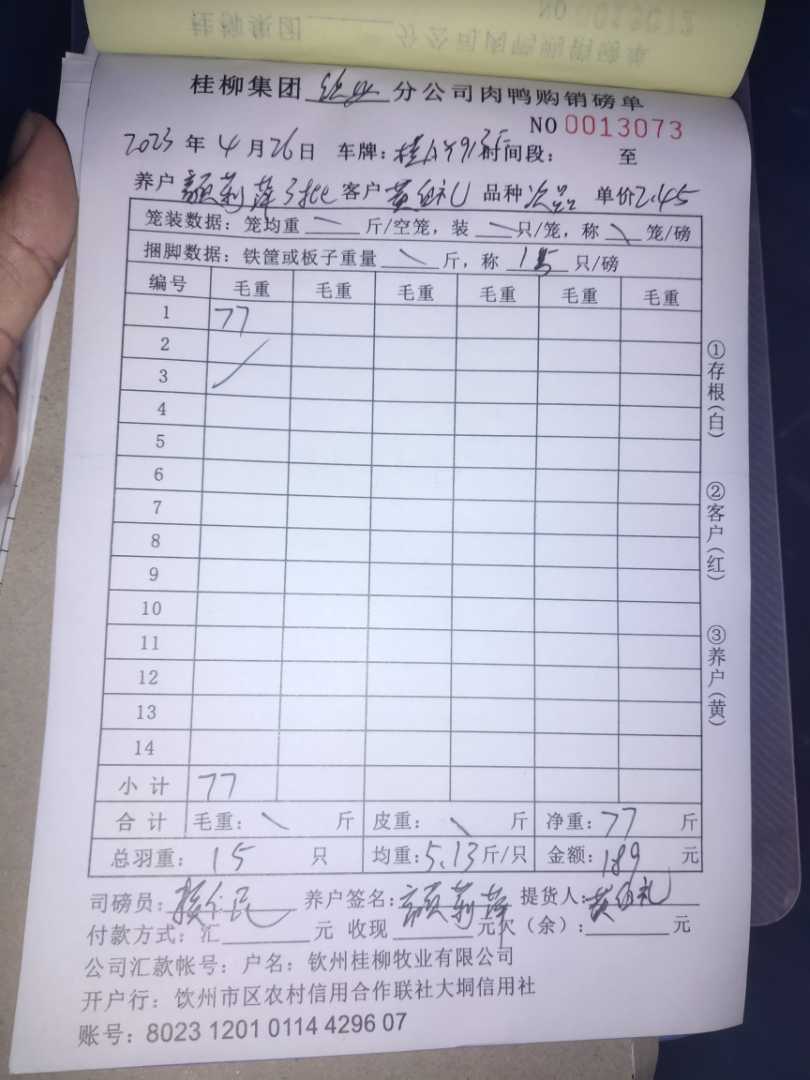 桂柳集团 分公司肉鸭购销磅单
NO 0013073
2023年4月26日 车牌: 时间段: 至
养户 颜莉萍3批 客户 黄 礼 品种 次品 单价2.45
笼装数据: 笼均重 斤/空笼, 装 只/笼, 称 笼/磅
捆脚数据: 铁筐或板子重量 斤, 称 15 只/磅
编号 毛重 毛重 毛重 毛重 毛重 毛重
1 77
2
3
4
5
6
7
8
9
10
11
12
13
14
小计 77
合计 毛重: 斤 皮重: 斤 净重: 77 斤
总羽重: 15 只 均重: 5.13斤/只 金额: 189 元
司磅员: 养户签名: 颜莉萍 提货人: 黄 礼
付款方式: 汇 元 收现 元欠(余): 元
公司汇款帐号: 户名: 钦州桂柳牧业有限公司
开户行: 钦州市区农村信用合作联社大垌信用社
账号: 8023 1201 0114 4296 07
①存根(白)
②客户(红)
③养户(黄)